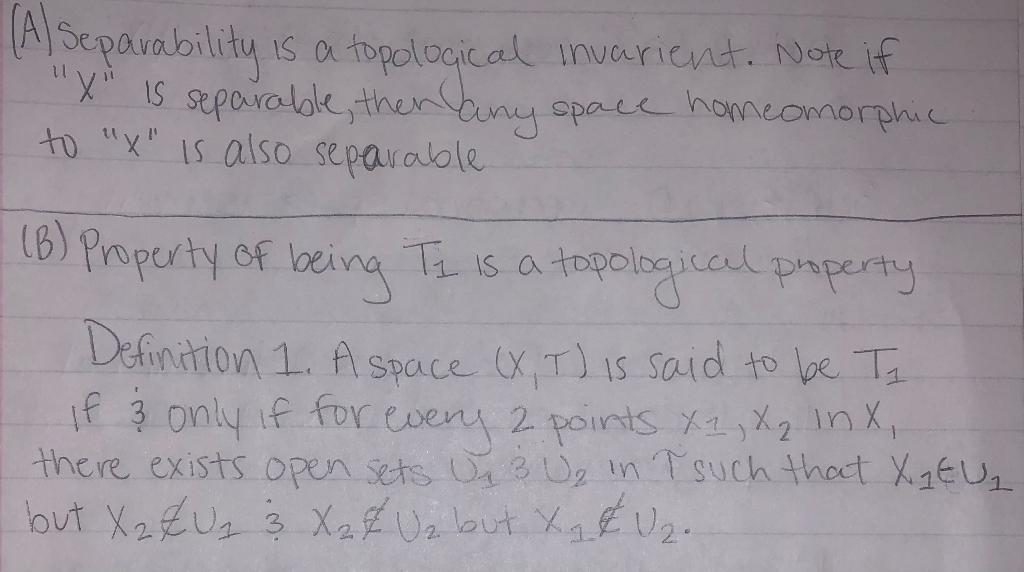 (A) Separability is a topological invarient. Note if
"X" is separable, then any space homeomorphic
to "X" is also separable
(B) Property of being T₁ is a topological property
Definition 1. A space (X, T) is said to be T₁
if & only if for every 2 points x₁, x₂ in X,
there exists open sets U₁ & U₂ in T such that X₁∈U₁
but X₂∉U₁ & X₂∉U₂ but X₁∉U₂.